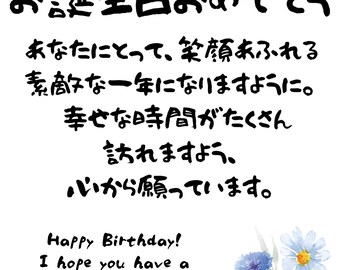 お誕生日おめでとう
あなたにとって、笑顔あふれる
素敵な一年になりますように。
幸せな時間がたくさん
訪れますよう、
心から願っています。
Happy Birthday!
I hope you have a